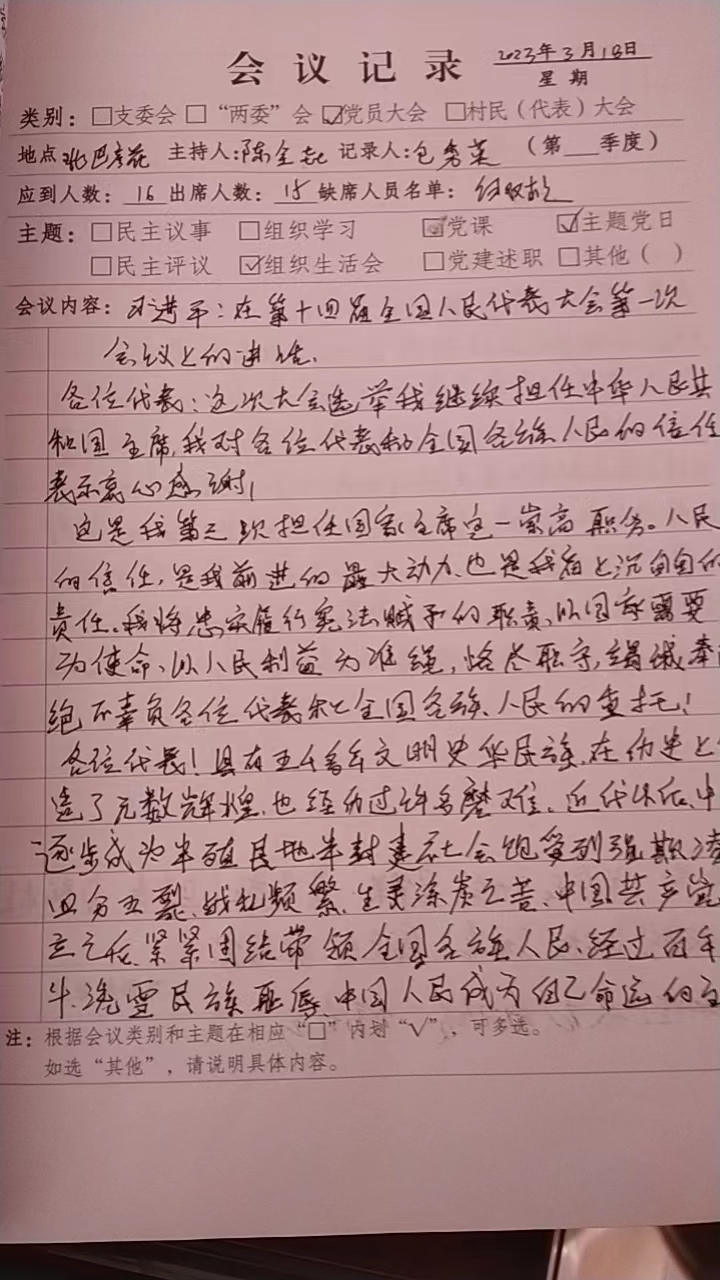 会议记录 2023年3月18日
星期
类别：□支委会 □“两委”会 ☑党员大会 □村民（代表）大会
地点 主持人：陈全 记录人：包秀英 （第 季度）
应到人数：16 出席人数：15 缺席人员名单：
主题：□民主议事 □组织学习 ☑党课 ☑主题党日
□民主评议 ☑组织生活会 □党建述职 □其他（ ）
会议内容：习进平：在第十四届全国人民代表大会第一次
会议上的讲话.
各位代表：这次大会选举我继续担任中华人民共
和国主席,我对各位代表和全国各族人民的信任
表示衷心感谢!
这是我第三次担任国家主席这一崇高职务。人民
的信任,是我前进的最大动力、也是我肩上沉甸甸的
责任。我将忠实履行宪法赋予的职责、以国家需要
为使命、以人民利益为准绳,恪尽职守,竭诚奉
绝不辜负各位代表和全国各族、人民的重托!
各位代表!具有五千多年文明史华民族,在历史上
造了无数辉煌,也经历过许多磨难、近代以后,中
逐步成为半殖民地半封建社会饱受列强欺凌
四分五裂、战乱频繁、生灵涂炭之苦、中国共产党
立之后、紧紧团结带领全国各族人民、经过百年
斗、洗雪民族耻辱、中国人民成为自己命运的主
注：根据会议类别和主题在相应“□”内划“√”，可多选。
如选“其他”，请说明具体内容。